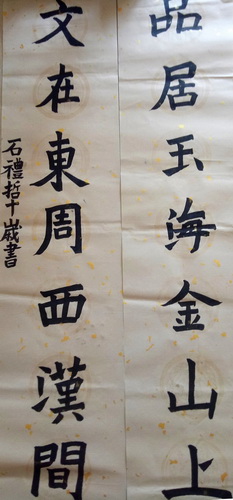 品居玉海金山上
文在東周西漢間
石禮哲十歲書